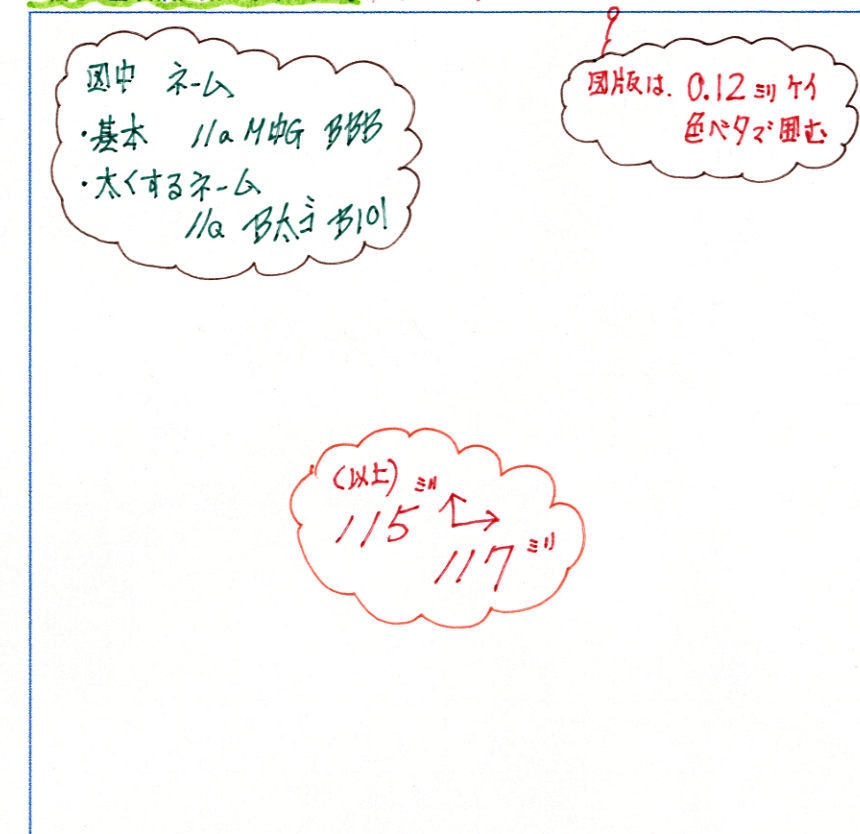 図中 ネーム
・基本 11Q M中G BBB
・太くするネーム
11Q B太ゴ B101
図版は、0.12ミリケイ
色ベタで囲む
(以上)
115ミリ
117ミリ